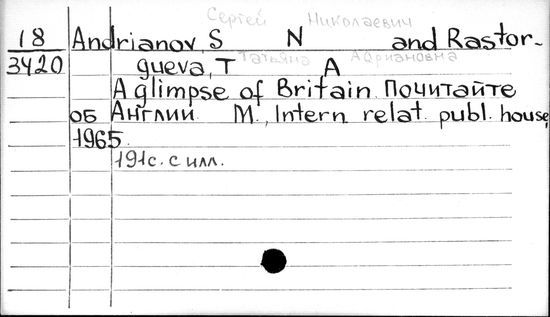 Сергей Николаевич
18 Andrianov, S N and Rastor-
Татьяна Адриановна
3420 gueva, T A
A glimpse of Britain Почитайте
об Англии M., Intern relat. publ. house,
1965.
191с. с илл.